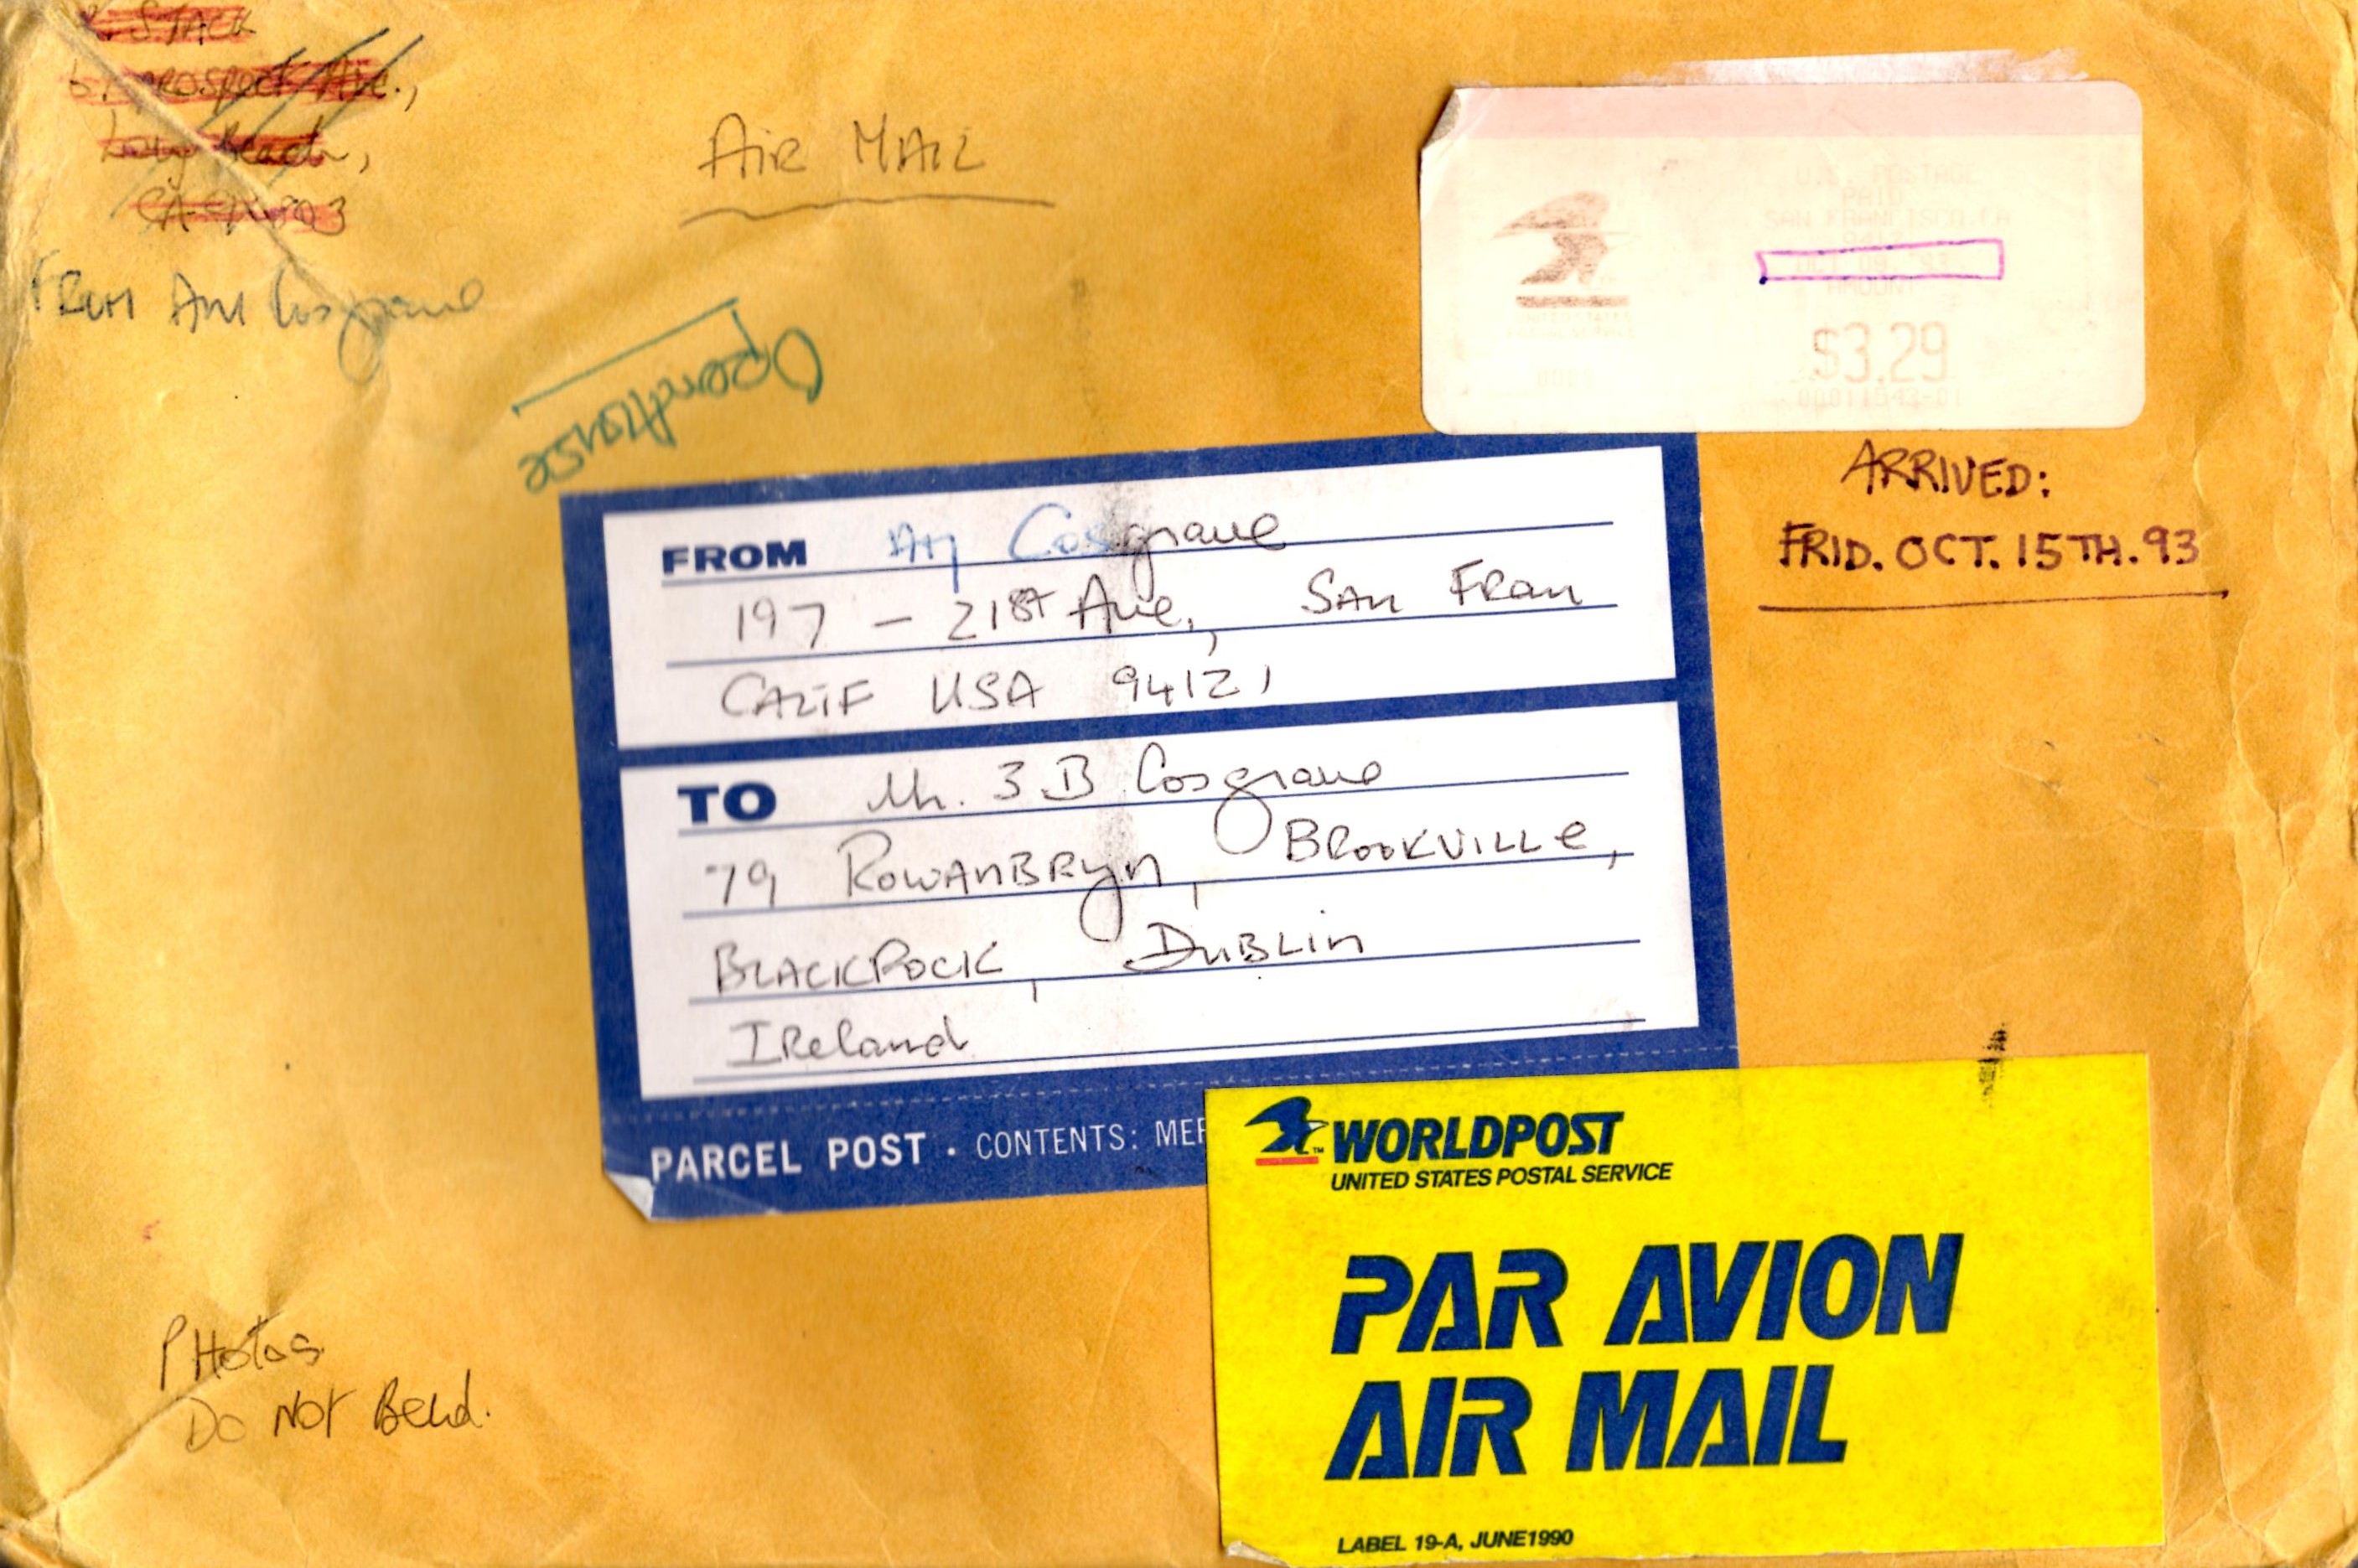 R. STACK
Prospect Ave.,
Long Beach,
CA 90803
FROM AM Cosgrave
AIR MAIL
Open House
U.S. POSTAGE
PAID
SAN FRANCISCO, CA
OCT 09 '93
AMOUNT
$3.29
00011043-01
UNITED STATES
POSTAL SERVICE
ARRIVED:
FRID. OCT. 15TH. 93
FROM AM Cosgrave
197 - 21st Ave., SAN FRAN
CALIF USA 94121
TO Mr. J B Cosgrave
79 ROWANBRYN, BROOKVILLE,
BLACKROCK, DUBLIN
IRELAND
PARCEL POST · CONTENTS: MER
WORLDPOST
UNITED STATES POSTAL SERVICE
PAR AVION
AIR MAIL
LABEL 19-A, JUNE 1990
PHOTOS
DO NOT Bend.